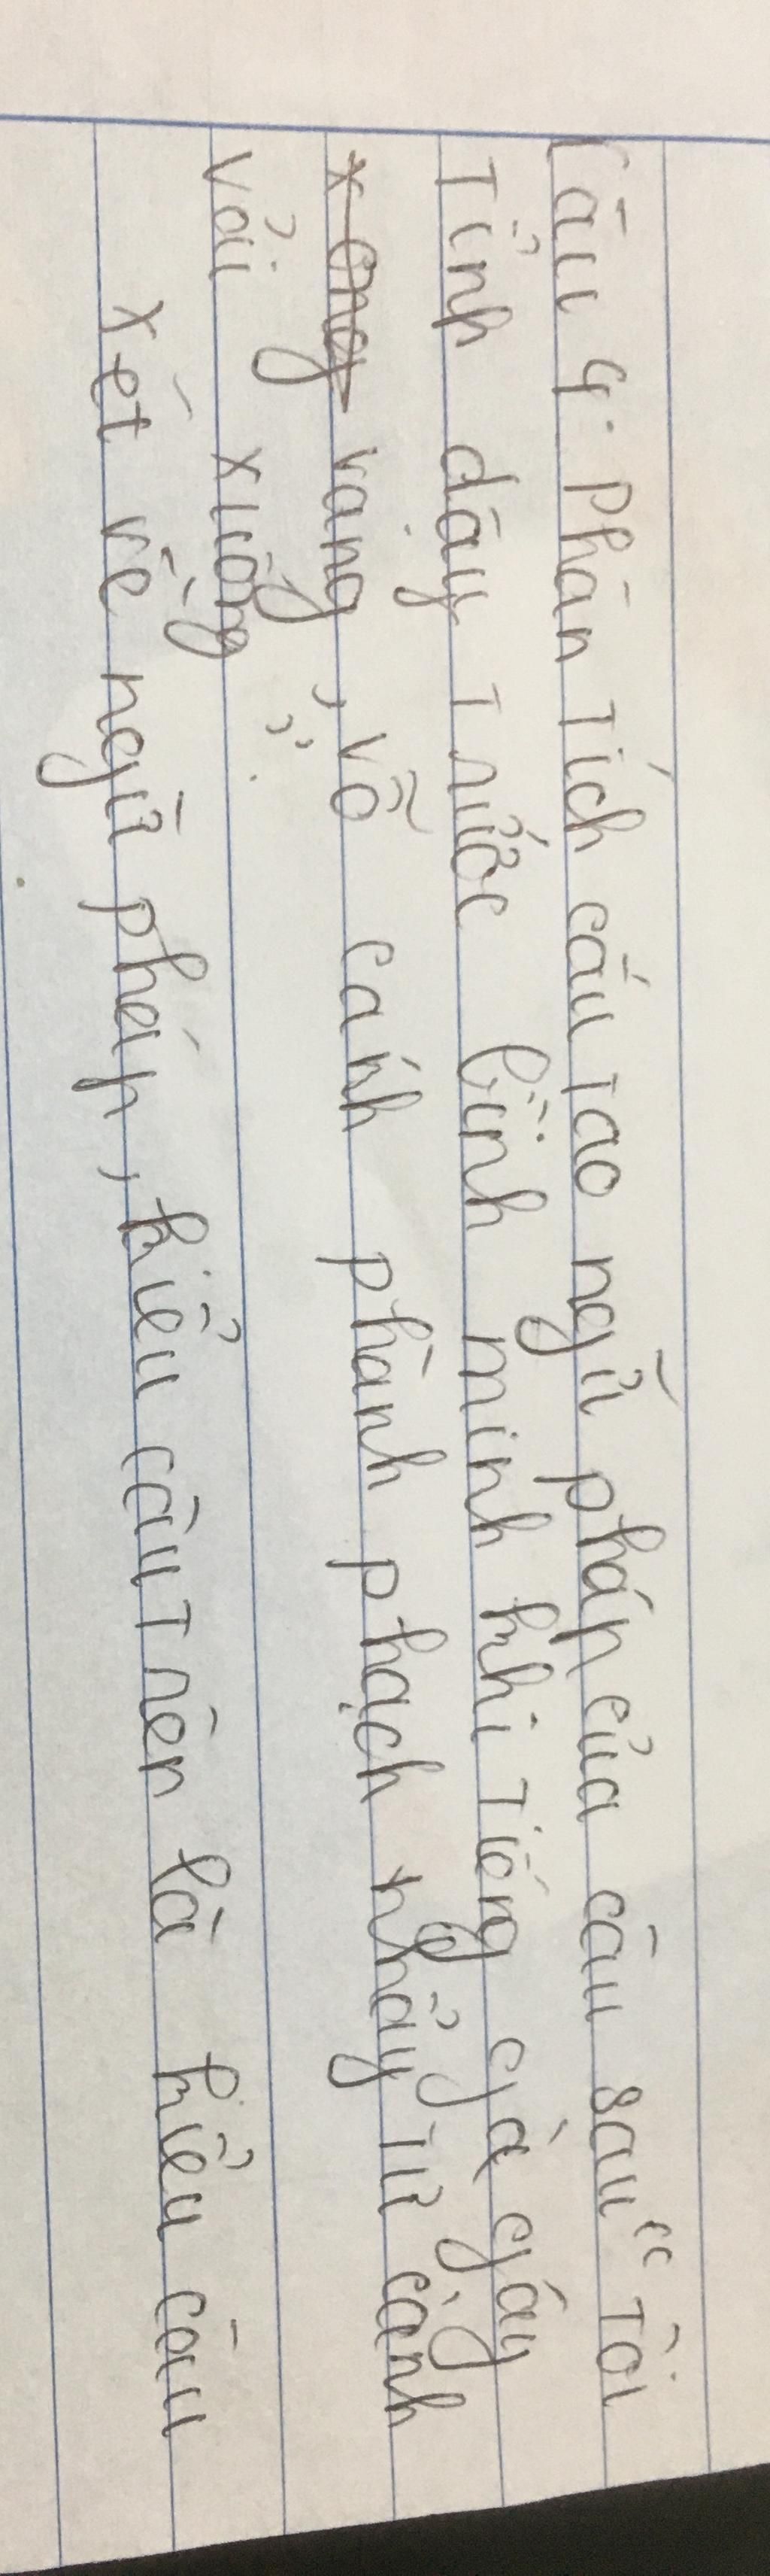 Câu 4. Phân Tích cấu Tạo ngữ pháp của câu sau "Tôi
Tỉnh dậy Trước bình minh khi Tiếng gà gáy
vang, vỗ cánh phành phạch nhảy Từ cành
vải xuống".
Xét về ngữ pháp, kiểu câu Trên là kiểu câu